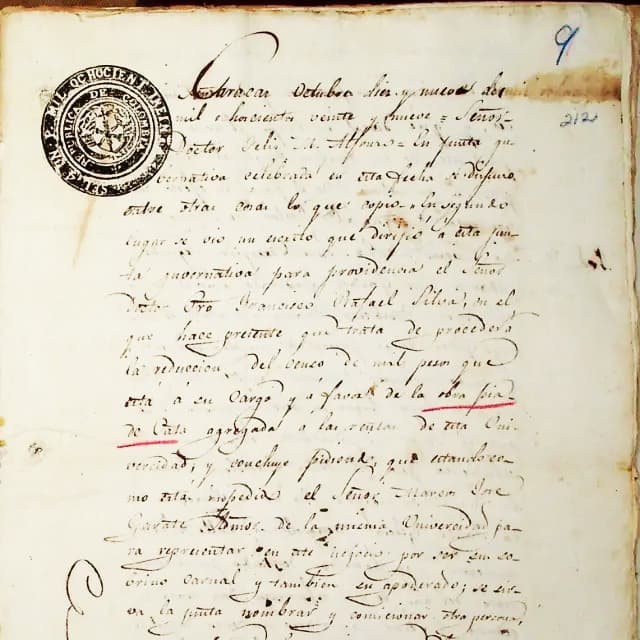 9
212
REPUBLICA DE COLOMBIA
Caracas Octubre diez y nueve de
mil ochocientos veinte y nueve = Señor
Doctor Felix A. Alfonso = En junta gu-
vernativa celebrada en esta fecha se dispuso
entre otras cosas lo que copio = En segundo
lugar se vio un escrito que dirijió á esta jun-
ta guvernativa para providencia el Señor
Doctor Fro Francisco Rafael Silva, en el
que hace presente que trata de proceder á
la reduccion del censo de mil pesos que
está á su cargo y á favor de la obra pia
de Cata agregada á las rentas de esta Uni-
vercidad, y concluye pidiendo, que estando co-
mo está impedido el Señor Marcos José
Garate Admor de la misma Univercidad pa-
ra representar en este negocio por ser su so-
brino carnal y tambien su apoderado, se sir-
va la junta nombrar y comicionar otra persona,